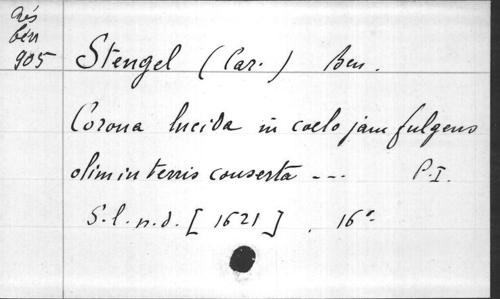 Rés
bén
905
Stengel (Car.) Ben.
Corona lucida in coelo jam fulgens
olim in terris conserta --- P.I.
S.l.n.d. [1621]. 16°.